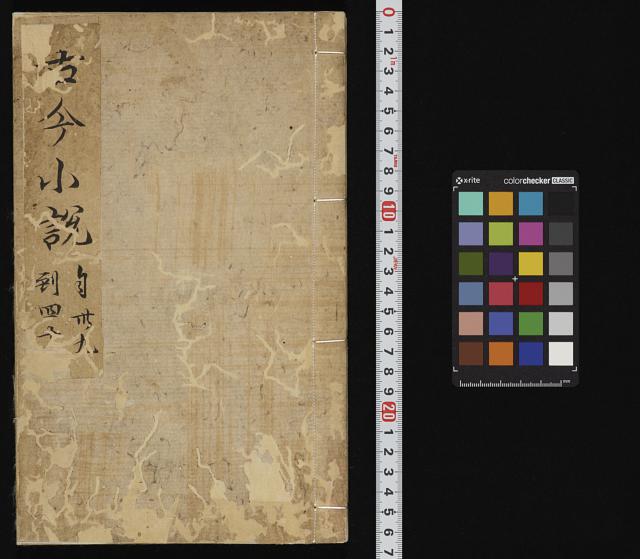 古今小説
自卅九
到四十
x-rite
colorchecker CLASSIC
mm
0
1
2
3
4
5
6
7
8
9
10
1
2
3
4
5
6
7
8
9
20
1
2
3
4
5
6
7